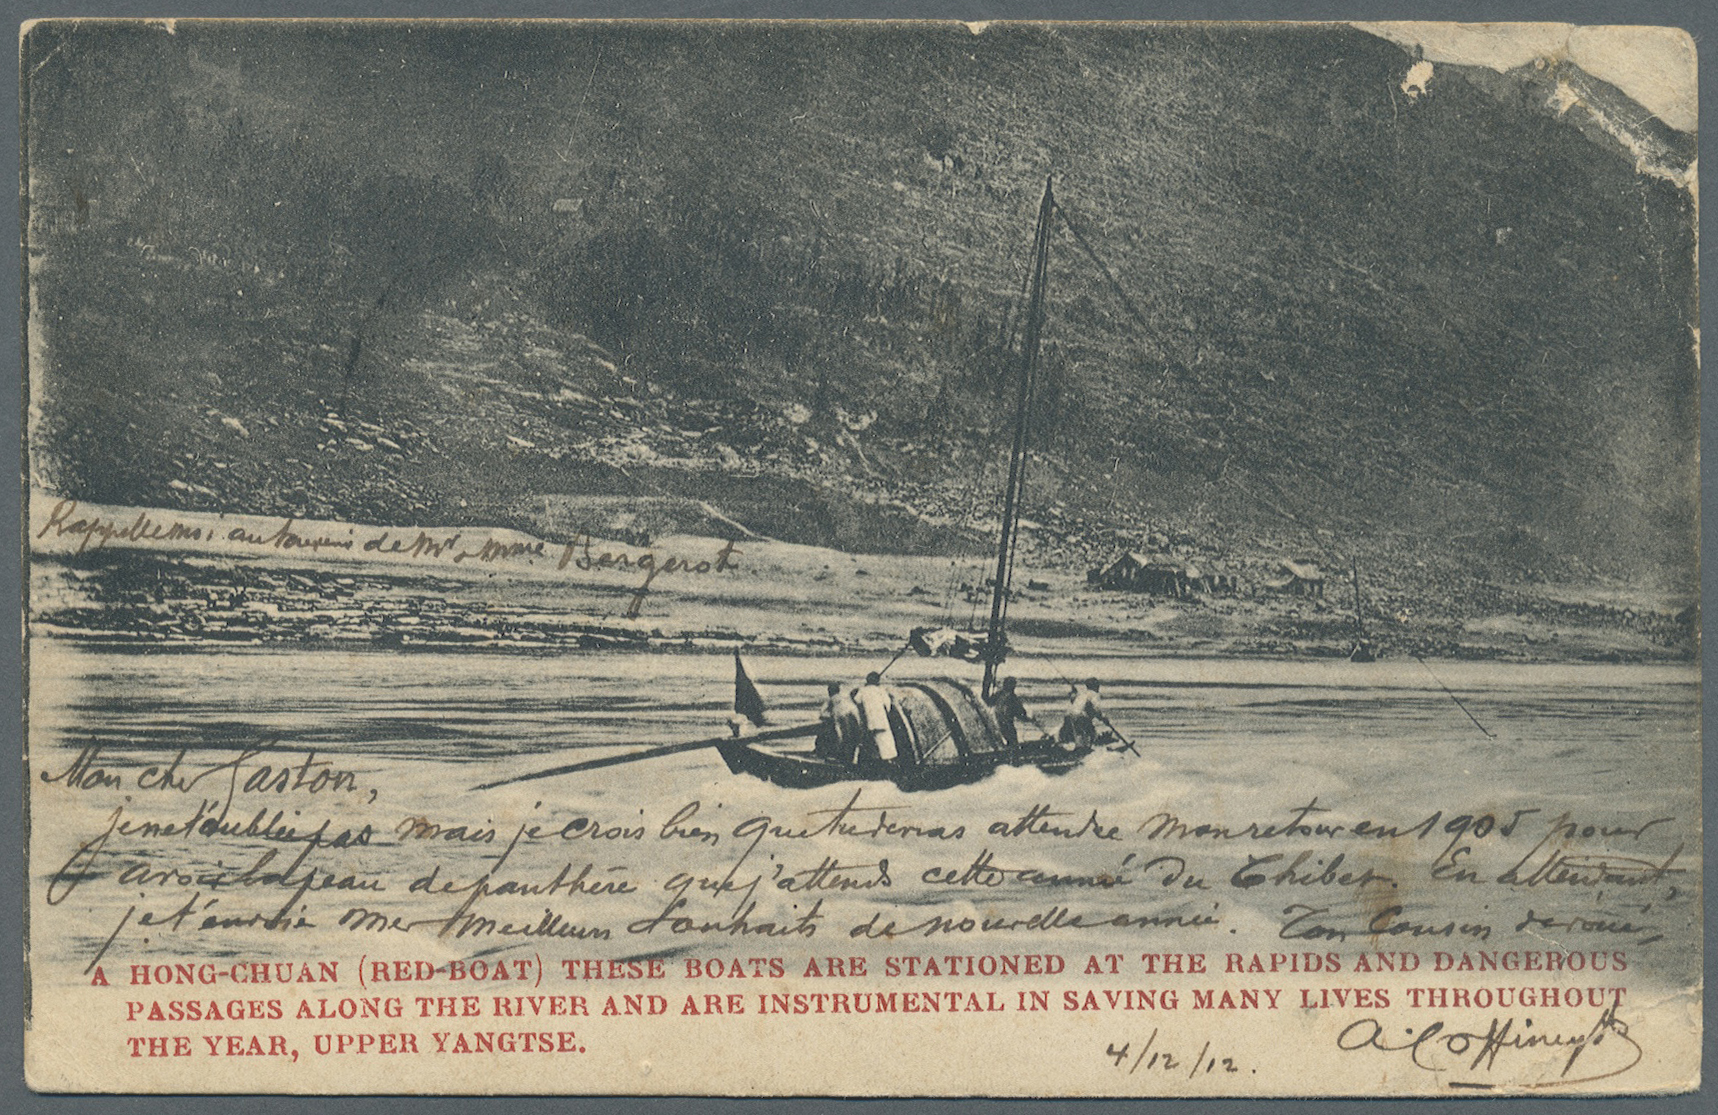 Rappelle moi au souvenir de Mr & Mme Bergerot.
Mon cher Gaston,
je ne t'oublie pas mais je crois bien que tu devras attendre mon retour en 1905 pour
avoir la peau de panthère que j'attends cette année du Thibet. En attendant,
je t'envoie mes meilleurs souhaits de nouvelle année. Ton Cousin dévoué,
A HONG-CHUAN (RED-BOAT) THESE BOATS ARE STATIONED AT THE RAPIDS AND DANGEROUS
PASSAGES ALONG THE RIVER AND ARE INSTRUMENTAL IN SAVING MANY LIVES THROUGHOUT
THE YEAR, UPPER YANGTSE.
4/12/12.